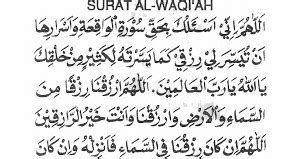 SURAT AL-WAQI'AH
اَللّٰهُمَّ اِنِّيْ اَسْئَلُكَ بِحَقِّ سُوْرَةِ الْوَاقِعَةِ وَاَسْرَارِهَا
اَنْ تُيَسِّرَ لِيْ رِزْقِيْ كَمَا يَسَّرْتَهُ لِكَثِيْرٍ مِنْ خَلْقِكَ
يَااَللهُ يَارَبَّ الْعَالَمِيْنَ. اَللّٰهُمَّ ارْزُقْنَا رِزْقًا مِنَ
السَّمَاءِ وَالْاَرْضِ وَارْزُقْنَا وَاَنْتَ خَيْرُ الرَّازِقِيْنَ
اَللّٰهُمَّ اِنْ كَانَ رِزْقُنَا فِي السَّمَاءِ فَاَنْزِلْهُ وَاِنْ كَانَ